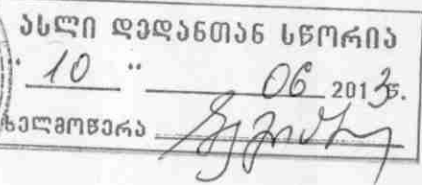 ასლი დედანთან სწორია
" 10 " 06 2013წ.
ხელმოწერა